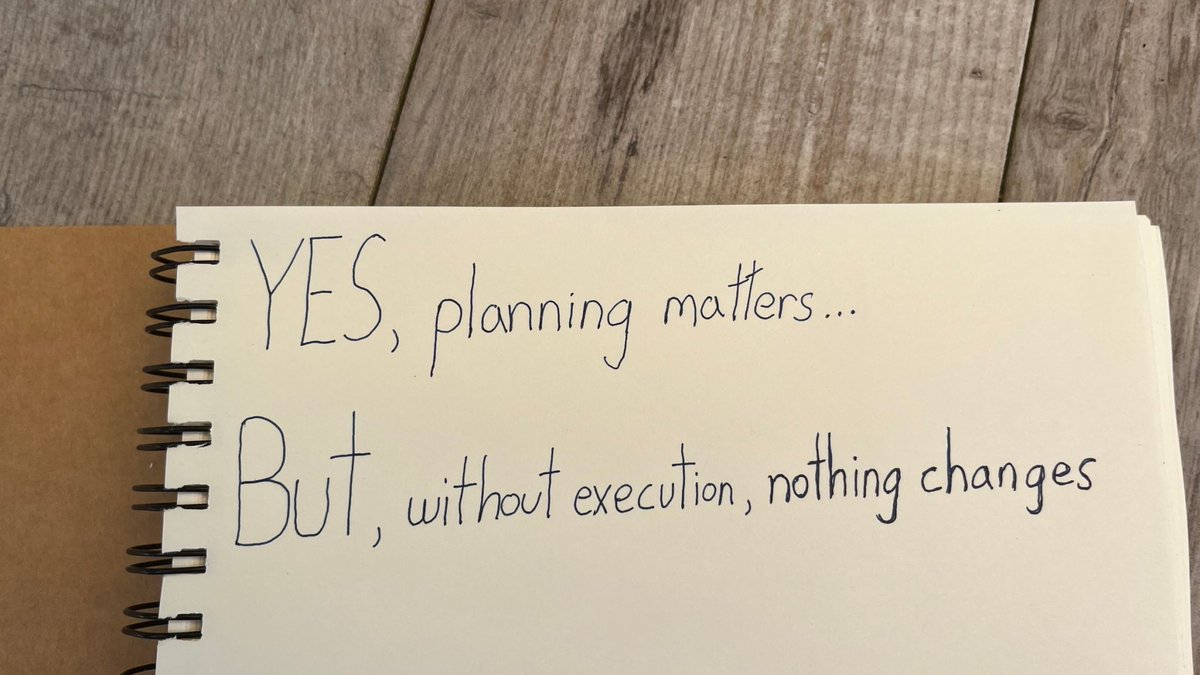 YES, planning matters...
But, without execution, nothing changes